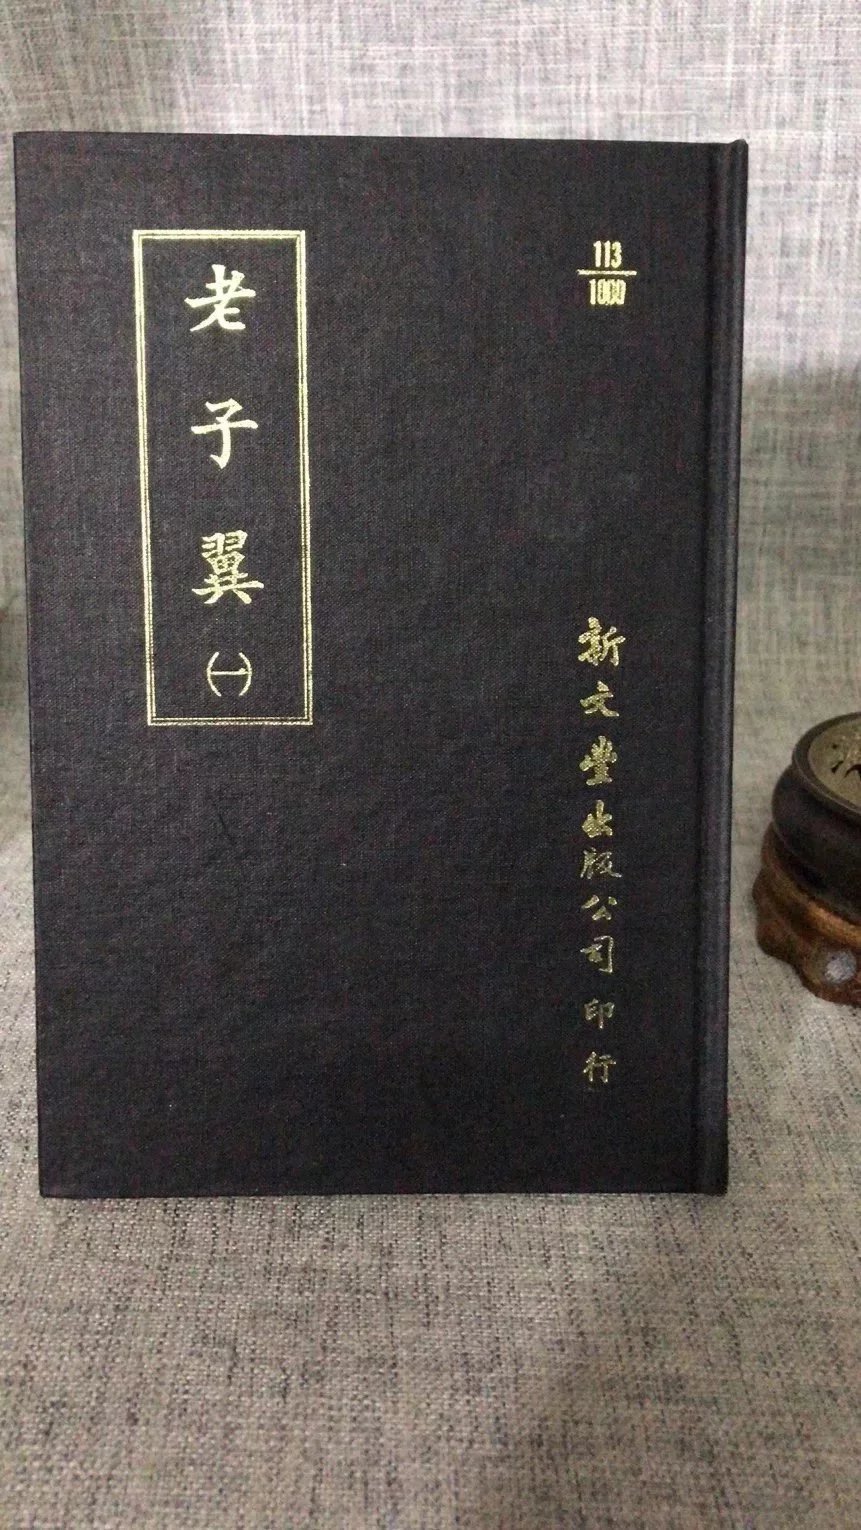 老子翼㈠
113
1000
新文豐出版公司印行